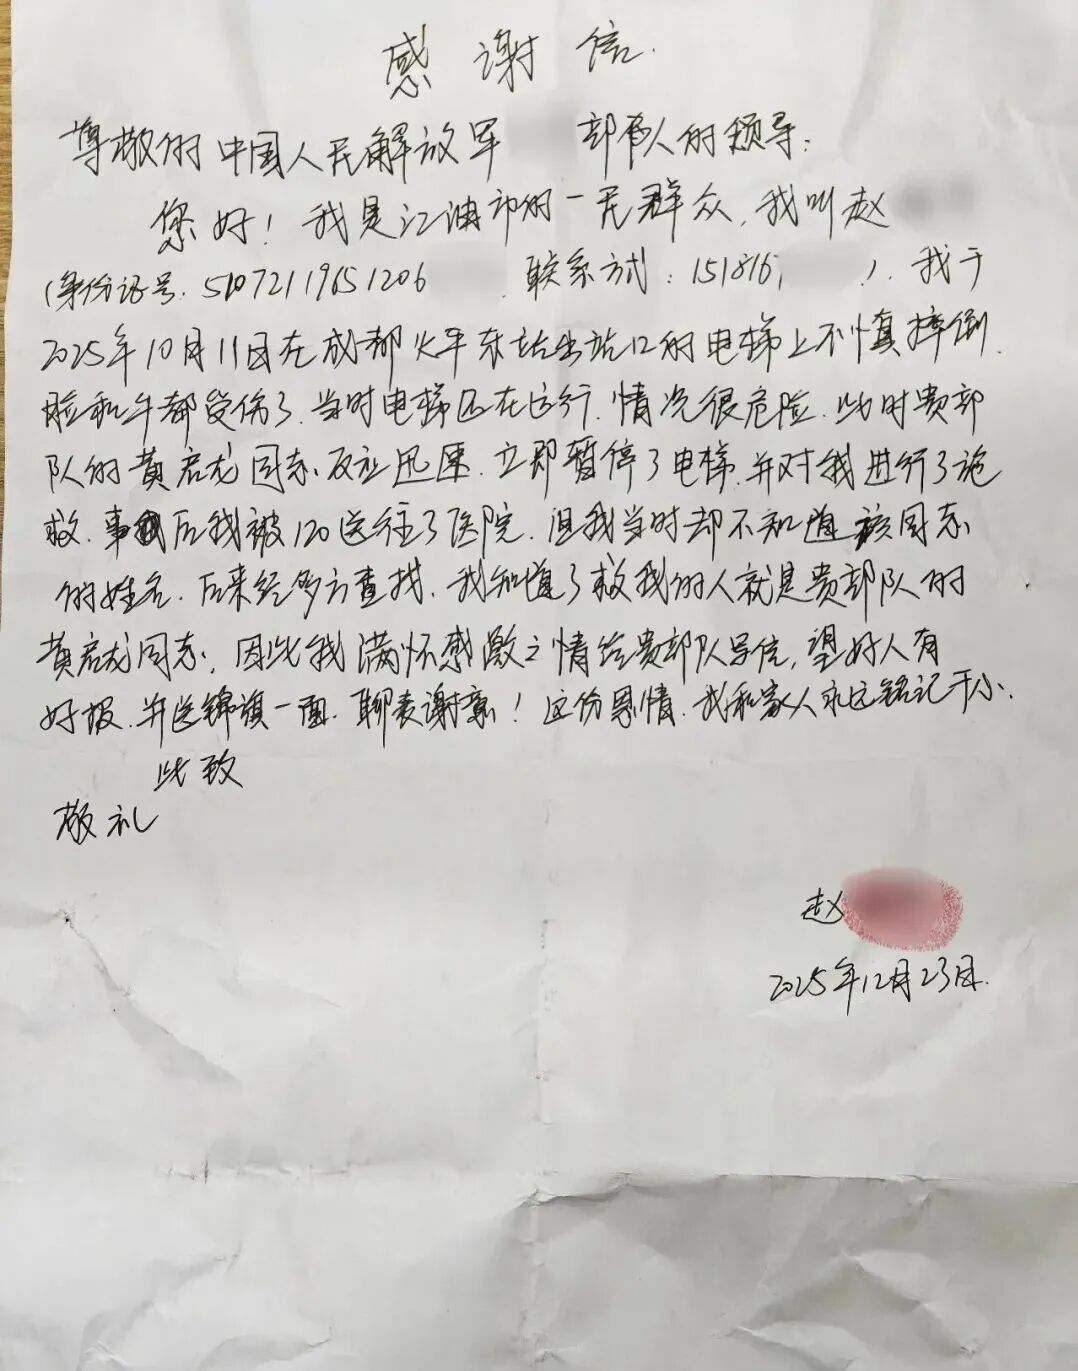 感谢信
尊敬的中国人民解放军 部队的领导:
您好！我是江油市的一名群众，我叫赵
(身份证号:51072119651206 联系方式:151816 )，我于
2025年10月11日在成都火车东站出站口的电梯上不慎摔倒，
脸和牙都受伤了，当时电梯还在运行，情况很危险，此时贵部
队的黄启龙同志反应迅速，立即暂停了电梯，并对我进行了施
救，事后我被120送往了医院，但我当时却不知道该同志
的姓名，后来经多方查找，我知道了救我的人就是贵部队的
黄启龙同志，因此我满怀感激之情给贵部队写信，望好人有
好报，并送锦旗一面，聊表谢意！这份恩情，我和家人永远铭记于心。
此致
敬礼
赵
2025年12月23日.